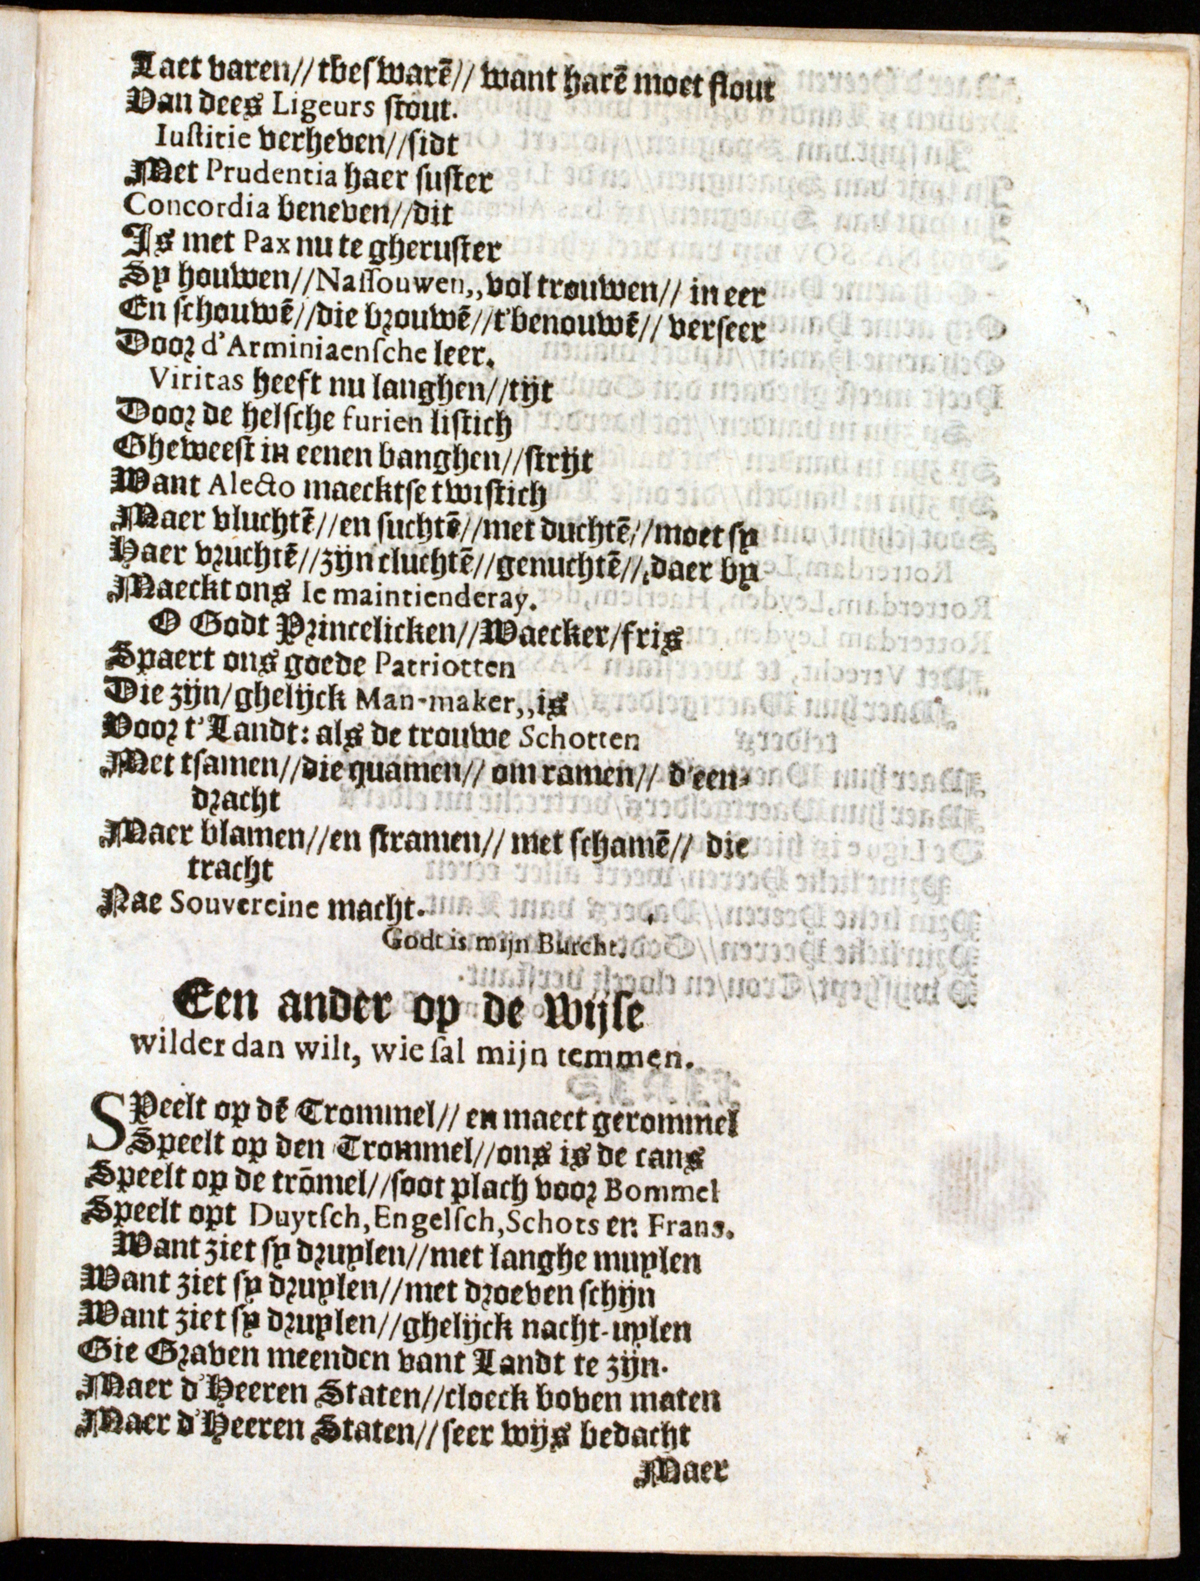 Laet varen// tbeswarē// want harē moet flout
Van dees Ligeurs stout.
Iustitie verheven//sidt
Met Prudentia haer suster
Concordia beneven//dit
Is met Pax nu te gheruster
Sy houwen//Nassouwen,,vol trouwen// in eer
En schouwē//die brouwē//t'benouwē// verseer
Door d'Arminiaensche leer.
Viritas heeft nu langhen//tijt
Door de helsche furien listich
Gheweest in eenen banghen//strijt
Want Alecto maecktse twistich
Maer vluchtē//en suchtē//met duchtē//moet sy
Haer vruchtē//zijn cluchtē//genuchtē//,daer by
Maeckt ons Ie maintienderay.
O Godt Princelicken//Waecker/fris
Spaert ons goede Patriotten
Die zijn/ghelijck Man-maker,,is
Voor t'Landt: als de trouwe Schotten
Met tsamen//die quamen// om ramen// d'een-
dracht
Maer blamen//en stramen// met schamē// die
tracht
Nae Souvereine macht.
Godt is mijn Burcht.
Een ander op de wijse
wilder dan wilt, wie sal mijn temmen.
SPeelt op dē Trommel// en maect gerommel
Speelt op den Trommel//ons is de cans
Speelt op de trōmel//soot plach voor Bommel
Speelt opt Duytsch,Engelsch,Schots en Frans.
Want ziet sy druylen//met langhe muylen
Want ziet sy druylen//met droeven schijn
Want ziet sy druylen//ghelijck nacht-uylen
Gie Graven meenden vant Landt te zijn.
Maer d'Heeren Staten//cloeck boven maten
Maer d'Heeren Staten//seer wijs bedacht
Maer